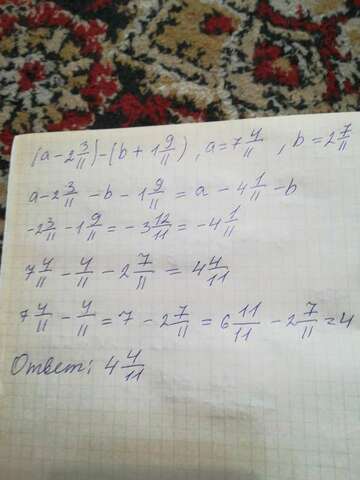 (a - 2 3/11) - (b + 1 9/11), a = 7 4/11, b = 2 7/11
a - 2 3/11 - b - 1 9/11 = a - 4 1/11 - b
-2 3/11 - 1 9/11 = -3 12/11 = -4 1/11
7 4/11 - 4/11 - 2 7/11 = 4 4/11
7 4/11 - 4/11 = 7 - 2 7/11 = 6 11/11 - 2 7/11 = 4
Ответ: 4 4/11